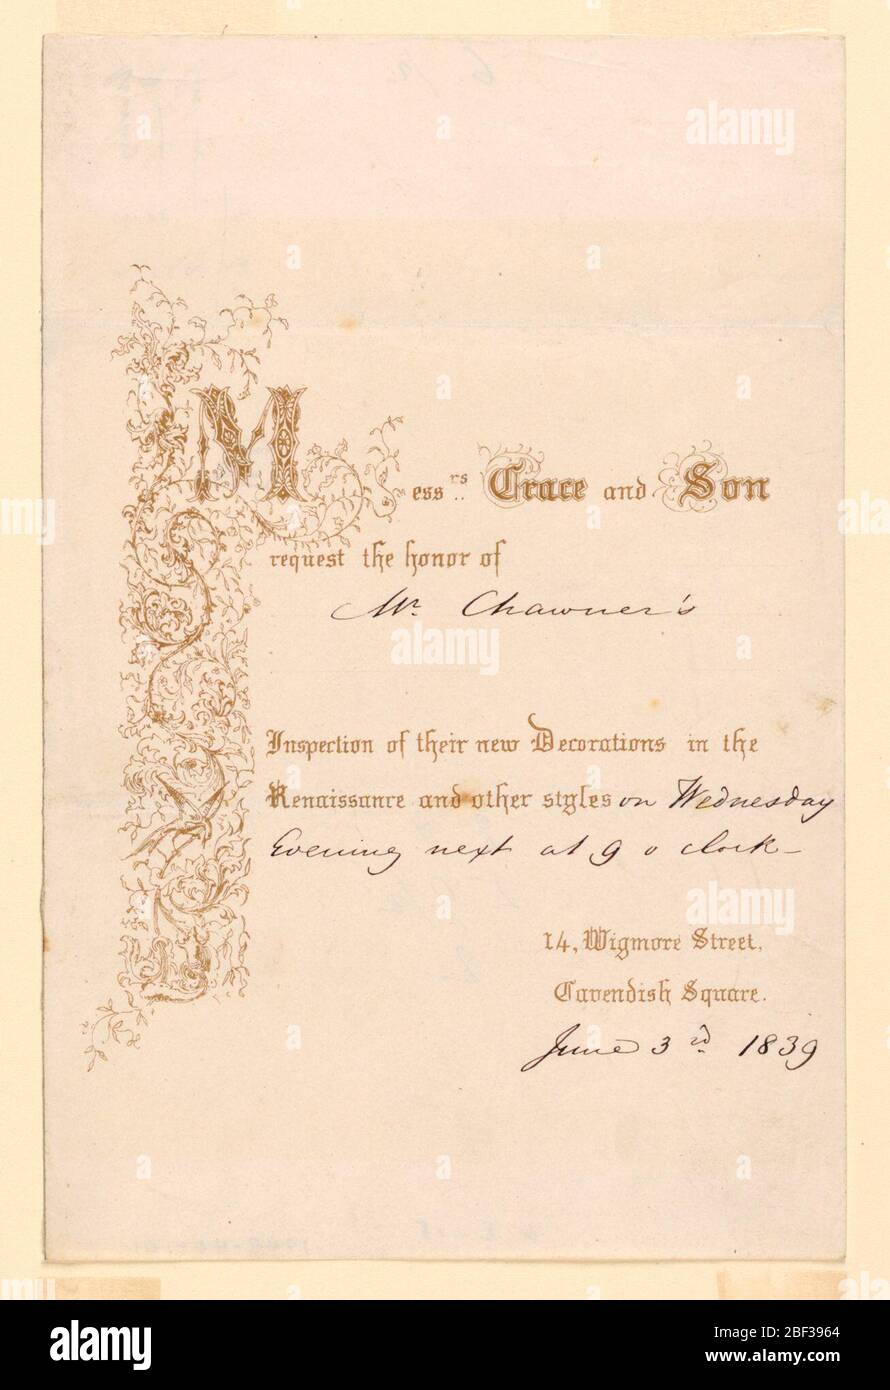 Mess.rs Crace and Son
request the honor of
Mr. Chawner's
Inspection of their new Decorations in the
Renaissance and other styles on Wednesday
Evening next at 9 o clock_
14, Wigmore Street,
Cavendish Square.
June 3rd. 1839
alamy
alamy
alamy
alamy
alamy
Image ID: 2BF3964
www.alamy.com